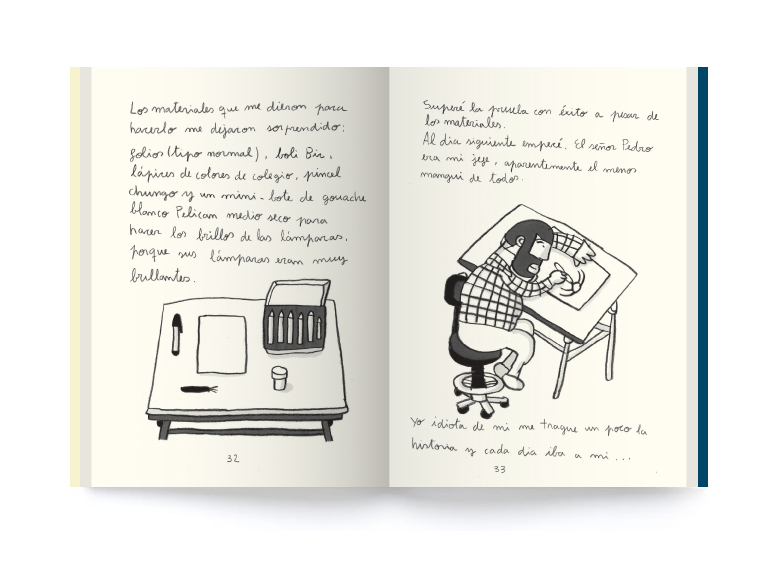 Los materiales que me dieron para
hacerlo me dejaron sorprendido:
folios (tipo normal), boli Bic,
lápices de colores de colegio, pincel
chungo y un mini-bote de gouache
blanco Pelican medio seco para
hacer los brillos de las lámparas,
porque sus lámparas eran muy
brillantes.
32
Superé la prueba con éxito a pesar de
los materiales.
Al dia siguiente empecé. El señor Pedro
era mi jefe, aparentemente el menos
mangui de todos.
Yo idiota de mi me tragué un poco la
historia y cada dia iba a mi ...
33